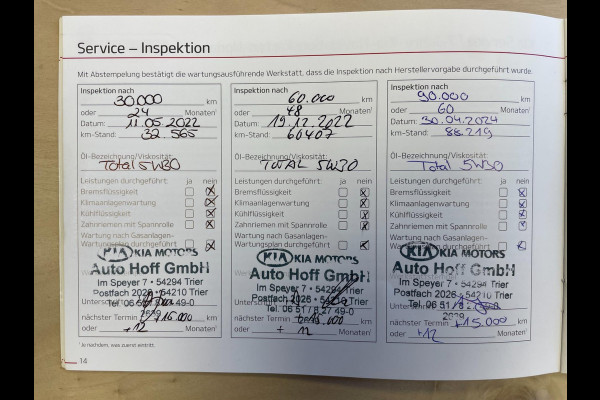 Service – Inspektion
Mit Abstempelung bestätigt die wartungsausführende Werkstatt, dass die Inspektion nach Herstellervorgabe durchgeführt wurde.
Inspektion nach
30000 km
oder 24 Monaten¹
Datum: 11.05.2022
km-Stand: 32.565
Öl-Bezeichnung/Viskosität:
Total 5W30
Leistungen durchgeführt: ja nein
Bremsflüssigkeit
Klimaanlagenwartung
Kühlflüssigkeit
Zahnriemen mit Spannrolle
Wartung nach Gasanlagen-
Wartungsplan durchgeführt
KIA KIA MOTORS
Auto Hoff GmbH
Im Speyer 7 • 54294 Trier
Postfach 2026 • 54210 Trier
Unterschrift
Tel. 06 51 / 8 27 49-0
nächster Termin +15.000 km
oder +12 Monaten¹
Inspektion nach
60.000 km
oder 48 Monaten¹
Datum: 19.12.2022
km-Stand: 60407
Öl-Bezeichnung/Viskosität:
TOTAL 5W30
Leistungen durchgeführt: ja nein
Bremsflüssigkeit
Klimaanlagenwartung
Kühlflüssigkeit
Zahnriemen mit Spannrolle
Wartung nach Gasanlagen-
Wartungsplan durchgeführt
KIA KIA MOTORS
Auto Hoff GmbH
Im Speyer 7 • 54294 Trier
Postfach 2026 • 54210 Trier
Unterschrift
Tel. 06 51 / 8 27 49-0
nächster Termin km
oder + 12 Monaten¹
Inspektion nach
90.000 km
oder 60 Monaten¹
Datum: 30.04.2024
km-Stand: 88.219
Öl-Bezeichnung/Viskosität:
Total 5W30
Leistungen durchgeführt: ja nein
Bremsflüssigkeit
Klimaanlagenwartung
Kühlflüssigkeit
Zahnriemen mit Spannrolle
Wartung nach Gasanlagen-
Wartungsplan durchgeführt
KIA KIA MOTORS
Auto Hoff GmbH
Im Speyer 7 • 54294 Trier
Postfach 2026 • 54210 Trier
Unterschrift
Tel. 06 51 /
nächster Termin +15.000 km
oder +12 Monaten¹
¹ Je nachdem, was zuerst eintritt.
14